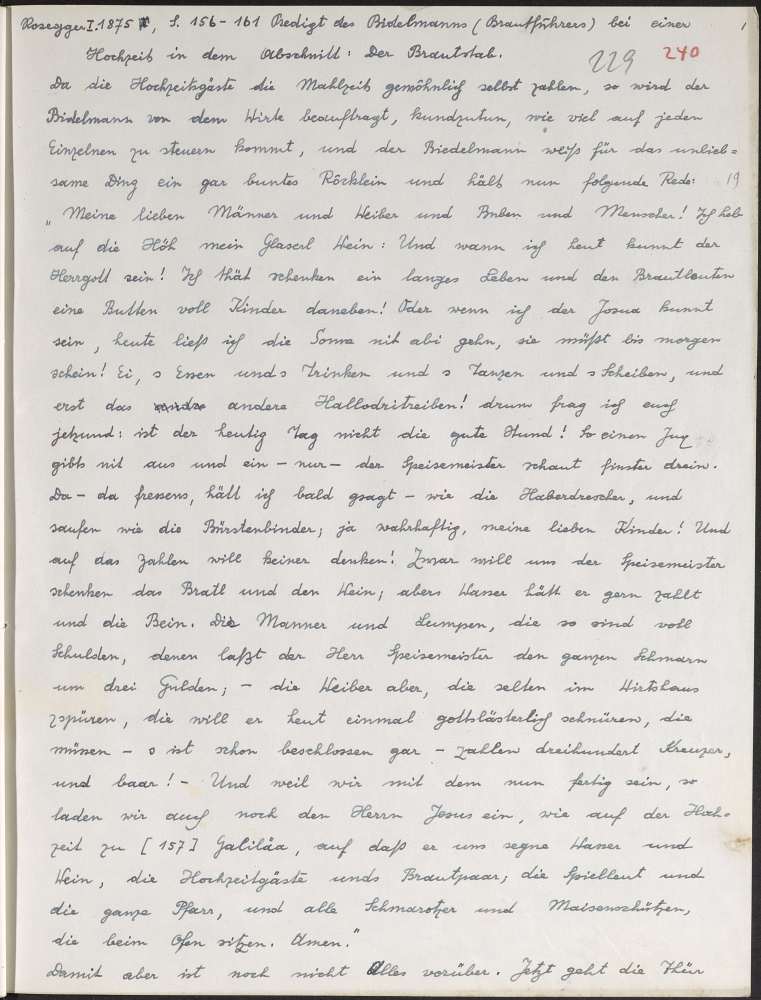 Rosegger I. 1875, S. 156-161 Predigt des Bidelmanns (Brautführers) bei einer 1
Hochzeit in dem Abschnitt: Der Brautstab. 229 240
Da die Hochzeitsgäste die Mahlzeit gewöhnlich selbst zahlen, so wird der
Bidelmann von dem Wirte beauftragt, kundzutun, wie viel auf jeden
Einzelnen zu steuern kommt, und der Biedelmann weiß für das unlieb=
same Ding ein gar buntes Röcklein und hält nun folgende Rede: 19
„Meine lieben Männer und Weiber und Buben und Menscher! Ich heb
auf die Höh mein Glaserl Wein: Und wann ich heut kunnt der
Herrgott sein! Ich thät schenken ein langes Leben und den Brautleuten
eine Butten voll Kinder daneben! Oder wenn ich der Josua kunnt
sein, heute ließ ich die Sonne nit abi gehn, sie müßt bis morgen
schein! Ei, s Essen unds Trinken und s Tanzen und s Scheiben, und
erst das andere Hallodritreiben! drum frag ich euch
jetzund: ist der heutig Tag nicht die gute Stund! So einen Jux
gibts nit aus und ein - nur - der Speisemeister schaut finster drein.
Da - da fressens, hätt ich bald gsagt - wie die Haberdrescher, und
saufen wie die Bürstenbinder; ja wahrhaftig, meine lieben Kinder! Und
auf das Zahlen will keiner denken! Zwar will uns der Speisemeister
schenken das Bratl und den Wein; abers Wasser hätt er gern zahlt
und die Bein. Die Manner und Lumpen, die so sind voll
Schulden, denen laßt der Herr Speisemeister den ganzen Schmarn
um drei Gulden; - die Weiber aber, die selten im Wirtshaus
zspüren, die will er heut einmal gottslästerlich schnüren, die
müssen - s ist schon beschlossen gar - zahlen dreihundert Kreuzer,
und baar! - Und weil wir mit dem nun fertig sein, so
laden wir auch noch den Herrn Jesus ein, wie auf der Hoch-
zeit zu [157] Galiläa, auf daß er uns segne Wasser und
Wein, die Hochzeitgäste unds Brautpaar; die Spielleut und
die ganze Pfarr, und alle Schmarotzer und Maisenschützen,
die beim Ofen sitzen. Amen."
Damit aber ist noch nicht Alles vorüber. Jetzt geht die Thür